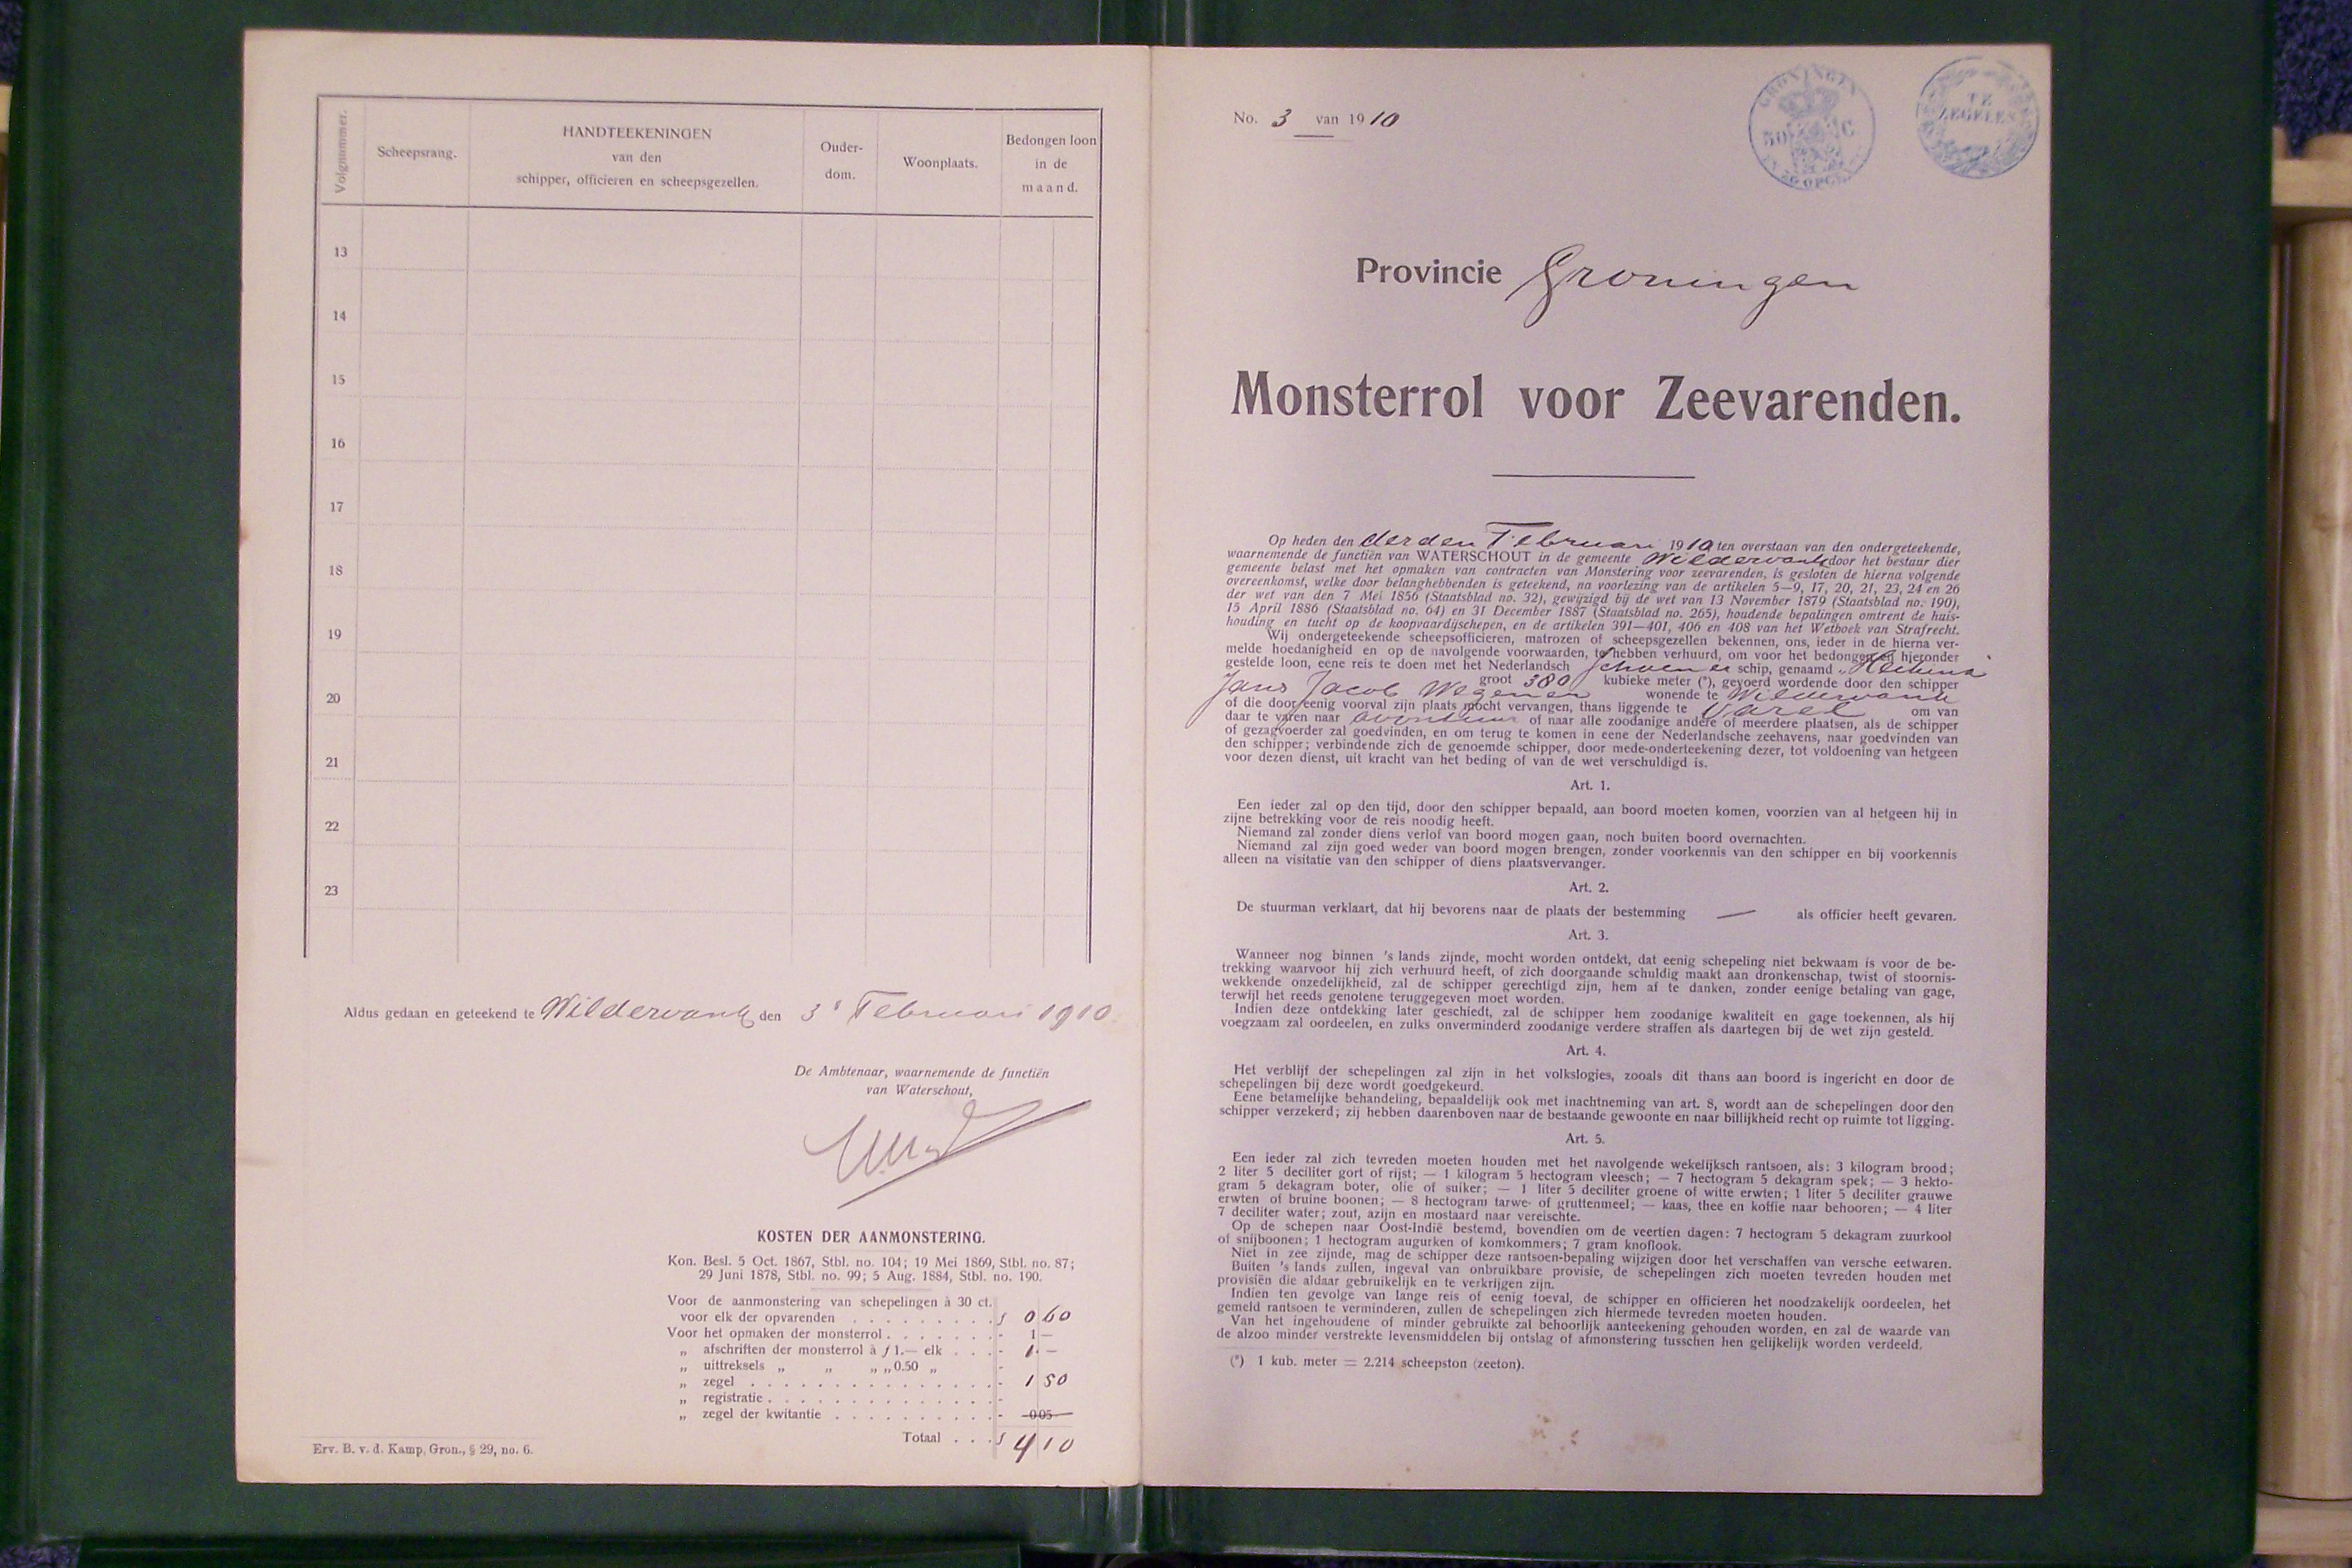 Volgnummer.
Scheepsrang.
HANDTEEKENINGEN
van den
schipper, officieren en scheepsgezellen.
Ouder-
dom.
Woonplaats.
Bedongen loon
in de
maand.
13
14
15
16
17
18
19
20
21
22
23
Aldus gedaan en geteekend te Wildervank den 3e Februari 1910
De Ambtenaar, waarnemende de functiën
van Waterschout,
KOSTEN DER AANMONSTERING.
Kon. Besl. 5 Oct. 1867, Stbl. no. 104; 19 Mei 1869, Stbl. no. 87;
29 Juni 1878, Stbl. no. 99; 5 Aug. 1884, Stbl. no. 190.
Voor de aanmonstering van schepelingen à 30 ct.
voor elk der opvarenden . . . . . . . . . f 0 60
Voor het opmaken der monsterrol . . . . . . . - 1 —
„ afschriften der monsterrol à f 1.— elk . . . - 1. —
„ uittreksels „ „ „ „ 0.50 „ -
„ zegel . . . . . . . . . . . . . . . - 1 50
„ registratie . . . . . . . . . . . . . . -
„ zegel der kwitantie . . . . . . . . . . - 0 05
Totaal . . . f 4 10
Erv. B. v. d. Kamp, Gron., § 29, no. 6.
No. 3 van 1910
GRONINGEN
50 C
TE
ZEGELEN
Provincie Groningen
Monsterrol voor Zeevarenden.
Op heden den derden Februari 1910 ten overstaan van den ondergeteekende,
waarnemende de functiën van WATERSCHOUT in de gemeente Wildervank door het bestuur dier
gemeente belast met het opmaken van contracten van Monstering voor zeevarenden, is gesloten de hierna volgende
overeenkomst, welke door belanghebbenden is geteekend, na voorlezing van de artikelen 5—9, 17, 20, 21, 23, 24 en 26
der wet van den 7 Mei 1856 (Staatsblad no. 32), gewijzigd bij de wet van 13 November 1879 (Staatsblad no. 190),
15 April 1886 (Staatsblad no. 64) en 31 December 1887 (Staatsblad no. 265), houdende bepalingen omtrent de huis-
houding en tucht op de koopvaardijschepen, en de artikelen 391—401, 406 en 408 van het Wetboek van Strafrecht.
Wij ondergeteekende scheepsofficieren, matrozen of scheepsgezellen bekennen, ons, ieder in de hierna ver-
melde hoedanigheid en op de navolgende voorwaarden, te hebben verhuurd, om voor het bedongen en hieronder
gestelde loon, eene reis te doen met het Nederlandsch Schoener schip, genaamd
groot 380 kubieke meter (*), gevoerd wordende door den schipper
Jans Jacob Wegener wonende te Wildervank
of die door eenig voorval zijn plaats mocht vervangen, thans liggende te Varel om van
daar te varen naar avontuur of naar alle zoodanige andere of meerdere plaatsen, als de schipper
of gezagvoerder zal goedvinden, en om terug te komen in eene der Nederlandsche zeehavens, naar goedvinden van
den schipper; verbindende zich de genoemde schipper, door mede-onderteekening dezer, tot voldoening van hetgeen
voor dezen dienst, uit kracht van het beding of van de wet verschuldigd is.
Art. 1.
Een ieder zal op den tijd, door den schipper bepaald, aan boord moeten komen, voorzien van al hetgeen hij in
zijne betrekking voor de reis noodig heeft.
Niemand zal zonder diens verlof van boord mogen gaan, noch buiten boord overnachten.
Niemand zal zijn goed weder van boord mogen brengen, zonder voorkennis van den schipper en bij voorkennis
alleen na visitatie van den schipper of diens plaatsvervanger.
Art. 2.
De stuurman verklaart, dat hij bevorens naar de plaats der bestemming — als officier heeft gevaren.
Art. 3.
Wanneer nog binnen 's lands zijnde, mocht worden ontdekt, dat eenig schepeling niet bekwaam is voor de be-
trekking waarvoor hij zich verhuurd heeft, of zich doorgaande schuldig maakt aan dronkenschap, twist of stoornis-
wekkende onzedelijkheid, zal de schipper gerechtigd zijn, hem af te danken, zonder eenige betaling van gage,
terwijl het reeds genotene teruggegeven moet worden.
Indien deze ontdekking later geschiedt, zal de schipper hem zoodanige kwaliteit en gage toekennen, als hij
voegzaam zal oordeelen, en zulks onverminderd zoodanige verdere straffen als daartegen bij de wet zijn gesteld.
Art. 4.
Het verblijf der schepelingen zal zijn in het volkslogies, zooals dit thans aan boord is ingericht en door de
schepelingen bij deze wordt goedgekeurd.
Eene betamelijke behandeling, bepaaldelijk ook met inachtneming van art. 8, wordt aan de schepelingen door den
schipper verzekerd; zij hebben daarenboven naar de bestaande gewoonte en naar billijkheid recht op ruimte tot ligging.
Art. 5.
Een ieder zal zich tevreden moeten houden met het navolgende wekelijksch rantsoen, als: 3 kilogram brood;
2 liter 5 deciliter gort of rijst; — 1 kilogram 5 hectogram vleesch; — 7 hectogram 5 dekagram spek; — 3 hekto-
gram 5 dekagram boter, olie of suiker; — 1 liter 5 deciliter groene of witte erwten; 1 liter 5 deciliter grauwe
erwten of bruine boonen; — 8 hectogram tarwe- of gruttenmeel; — kaas, thee en koffie naar behooren; — 4 liter
7 deciliter water; zout, azijn en mostaard naar vereischte.
Op de schepen naar Oost-Indië bestemd, bovendien om de veertien dagen: 7 hectogram 5 dekagram zuurkool
of snijboonen; 1 hectogram augurken of komkommers; 7 gram knoflook.
Niet in zee zijnde, mag de schipper deze rantsoen-bepaling wijzigen door het verschaffen van versche eetwaren.
Buiten 's lands zullen, ingeval van onbruikbare provisie, de schepelingen zich moeten tevreden houden met
provisiën die aldaar gebruikelijk en te verkrijgen zijn.
Indien ten gevolge van lange reis of eenig toeval, de schipper en officieren het noodzakelijk oordeelen, het
gemeld rantsoen te verminderen, zullen de schepelingen zich hiermede tevreden moeten houden.
Van het ingehoudene of minder gebruikte zal behoorlijk aanteekening gehouden worden, en zal de waarde van
de alzoo minder verstrekte levensmiddelen bij ontslag of afmonstering tusschen hen gelijkelijk worden verdeeld.
(*) 1 kub. meter = 2.214 scheepston (zeeton).